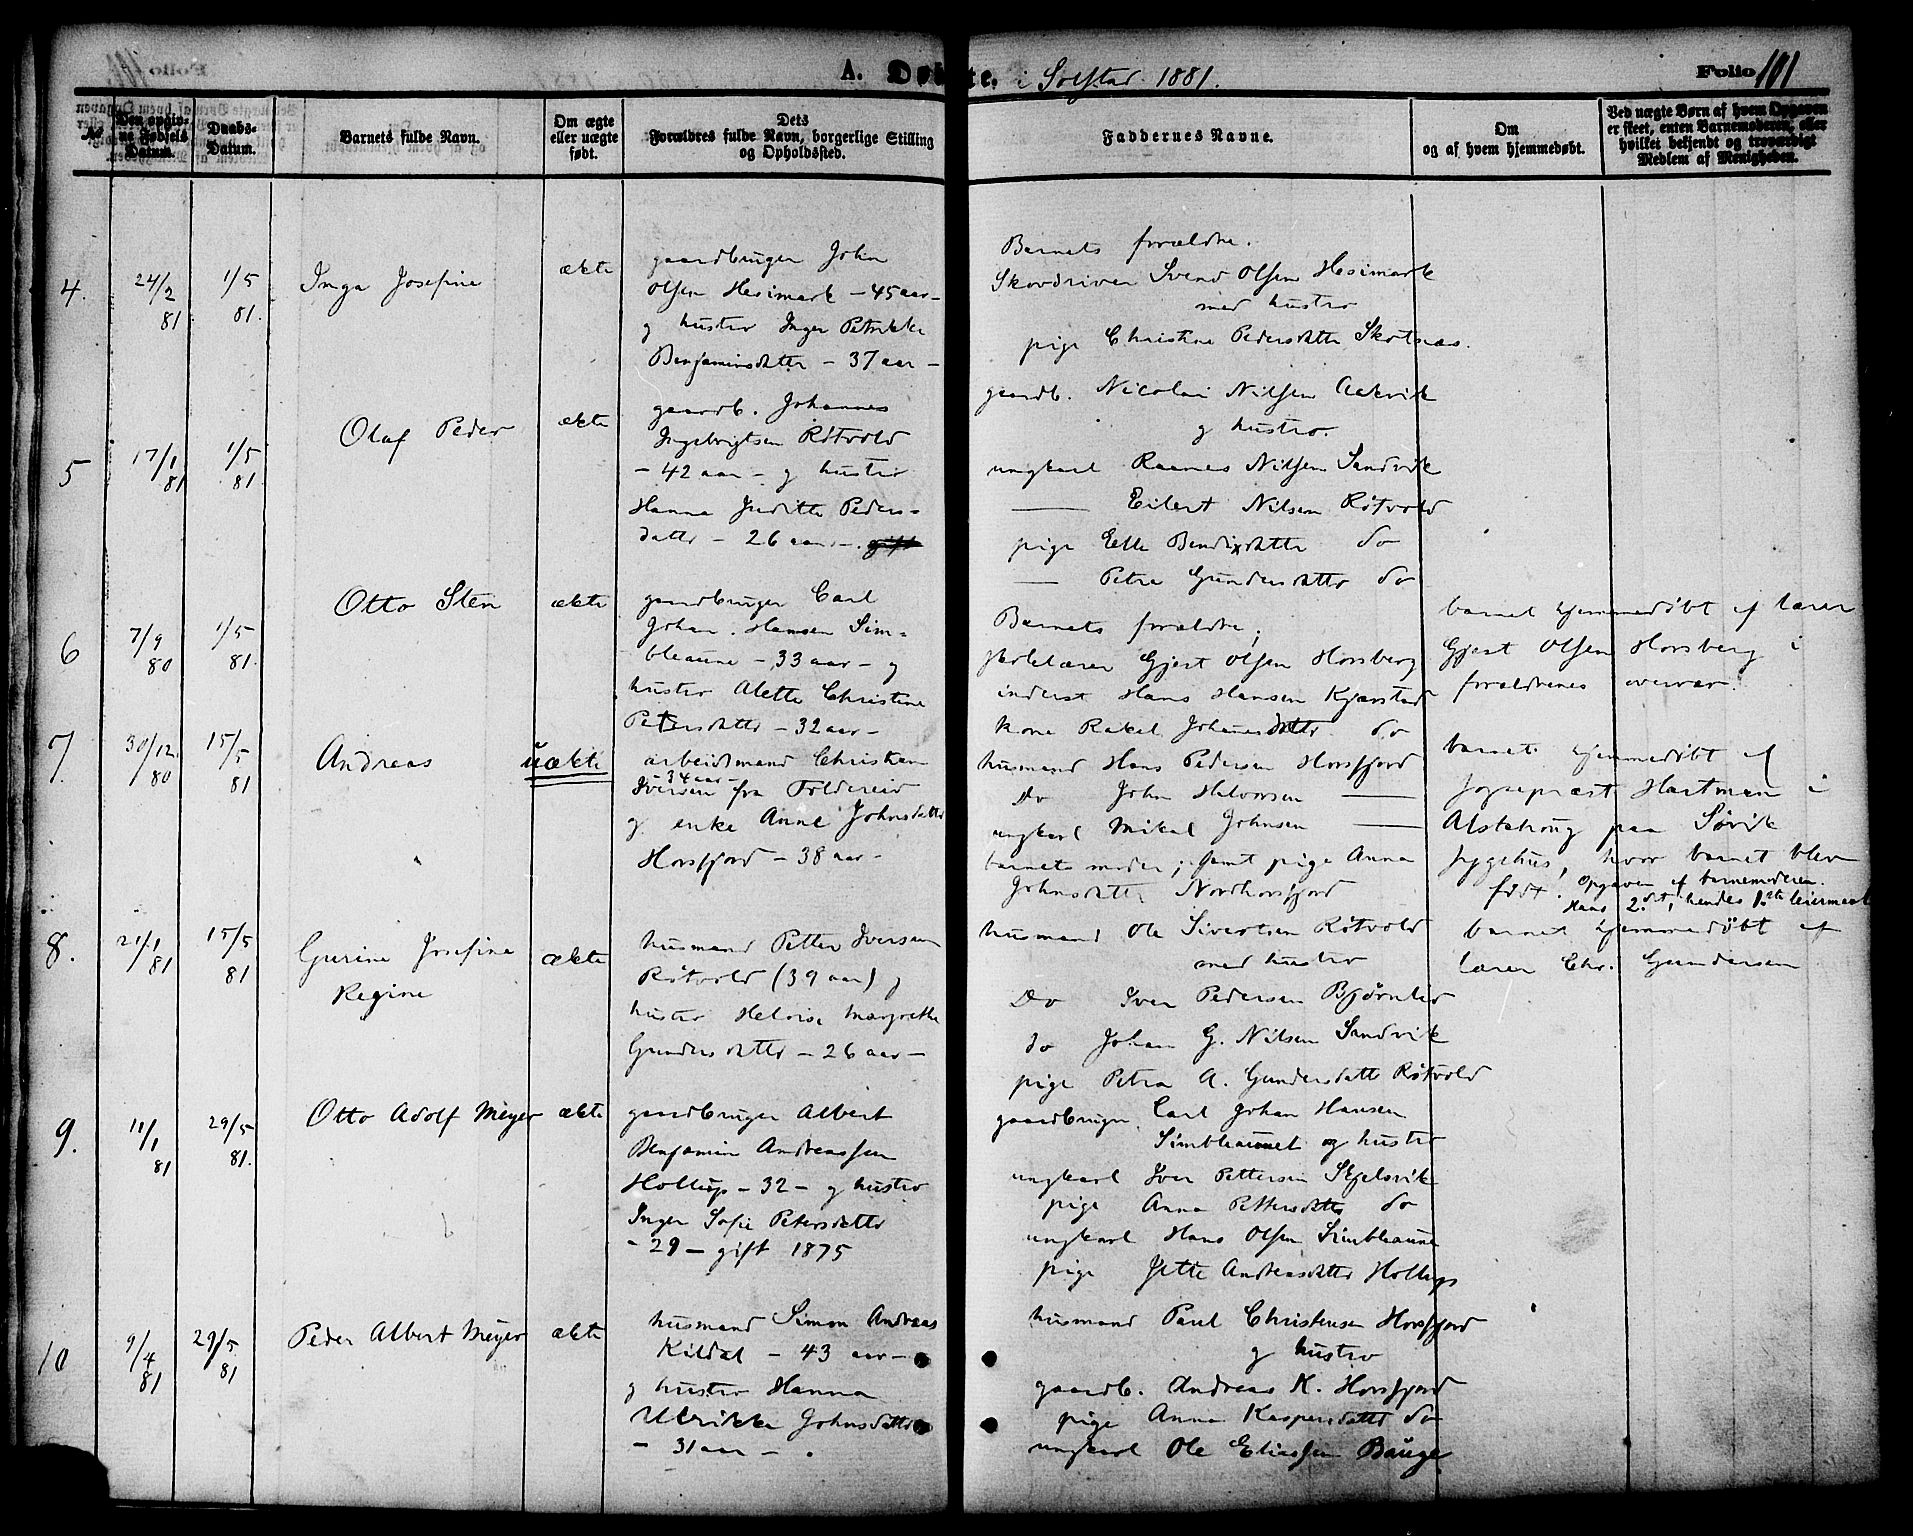 A. Døbte. i Solstad 1881. Folio 101
No
Den opgivne Fødsels Datum.
Daabs-Datum.
Barnets fulde Navn.
Om ægte eller uægte født.
Dets Forældres fulde Navn, borgerlige Stilling og Opholdssted.
Faddernes Navne.
Om og af hvem hjemmedøbt.
Ved uægte Børn af hvem Opgaven er skeet, enten Barnemoderen, eller hvilket bekjendt og troværdigt Medlem af Menigheden.
4. 24/2 81 1/5 81. Inga Josefine ækte
gaardbruger John
Olsen Hesimark – 45 aar –
og hustro Inger Petrikke
Benjaminsdatter – 37 aar –
Barnets forældre.
Skovdriver Svend Olsen Hesimark
med hustro
pige Christine Pedersdatter Skotnæs.
5 17/1 81 1/5 81. Olaf Peder ækte
gaardb. Johannes
Ingebrigtsen Røtvold
– 42 aar – og hustro
Hanna Juditte Peders-
datter – 26 aar – gift
gaardb. Nicolai Nilsen Aakvik
og hustro.
ungkarl Raanes Nilsen Sandvik
—— Eilert Nilsen Røtvold
pige Elle Bendixdatter do
— Petra Gundersdatter do
6 7/9 80 1/5 81. Otto Sten ækte
gaardbruger Carl
Johan Hansen Sim-
bleaune – 33 aar – og
hustro Alette Christine
Petersdatter – 32 aar –
Barnets forældre;
skolelærer Gjert Olsen Horsberg
inderst Hans Hansen Kjærstad
kone Rakel Johannesdatter do
barnet hjemmedøbt af lærer
Gjert Olsen Horsberg i
forældrenes overvær.
7. 30/12 80 15/5 81 Andreas uækte
arbeidsmand Christian
– 34 aar –
Iversen fra Foldereid
og enke Anne Johnsdatter
Horsfjord – 38 aar –
husmand Hans Pedersen Horsfjord
Do John Halvorsen ——
ungkarl Mikal Johnsen ——
barnets moder; samt pige Anna
Johnsdatter Nordhorsfjord
barnet hjemmedøbt af
sogneprest Hartman i
Alstahoug paa Søvik
sygehus, hvor barnet blev
født. Opgaven af barnemoderen.
Hans 2det, hendes 1ste leiermaal
8. 21/1 81 15/5 81 Gurine Josefine ækte
Regine
husmand Petter Iversen
Røtvold (39 aar) og
hustro Heloise Margrethe
Gundersdatter – 26 aar –
husmand Ole Sivertsen Røtvold
med hustro
Do Iver Pedersen Bjørnlid
do Johan G. Nilsen Sandvik
pige Petra A. Gundersdatt Røtvold
barnet hjemmedøbt af
lærer Chr. Gundersen
9. 11/1 81 29/5 81. Otto Adolf Meyer ækte
gaardbruger Albert
Benjamin Andreassen
Holtup – 32 – og hustro
Inger Sofie Petersdatter
– 29 – gift 1875
gaardbruger Carl Johan Hansen
Simbleaunet og hustro
ungkarl Iver Pettersen Skjelsvik
pige Anna Pettersdatter do
ungkarl Hans Olsen Simbleaune
pige Jette Andreasdatter Holtup
10 9/4 81 29/5 81 Peder Albert Meyer ækte
husmand Simon Andreas
Kildal – 43 aar –
og hustro Hanna
Ulrikka Johnsdatter
– 31 aar – .
husmand Paul Christensen Horsfjord
og hustro
gaardb. Andreas K. Horsfjord
pige Anna Kaspersdatter do
ungkarl Ole Eliassen Bauge